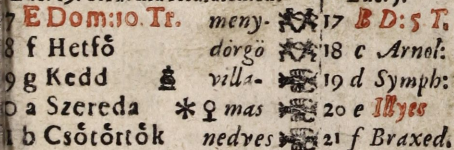 7 E Dom: 10. Tr. meny- 17 B D: 5 T.
8 f Hetfő dörgö 18 c Arnol:
9 g Kedd villa- 19 d Symph:
0 a Szereda mas 20 e Illyes
1 b Csőtőrtők nedves 21 f Braxed.